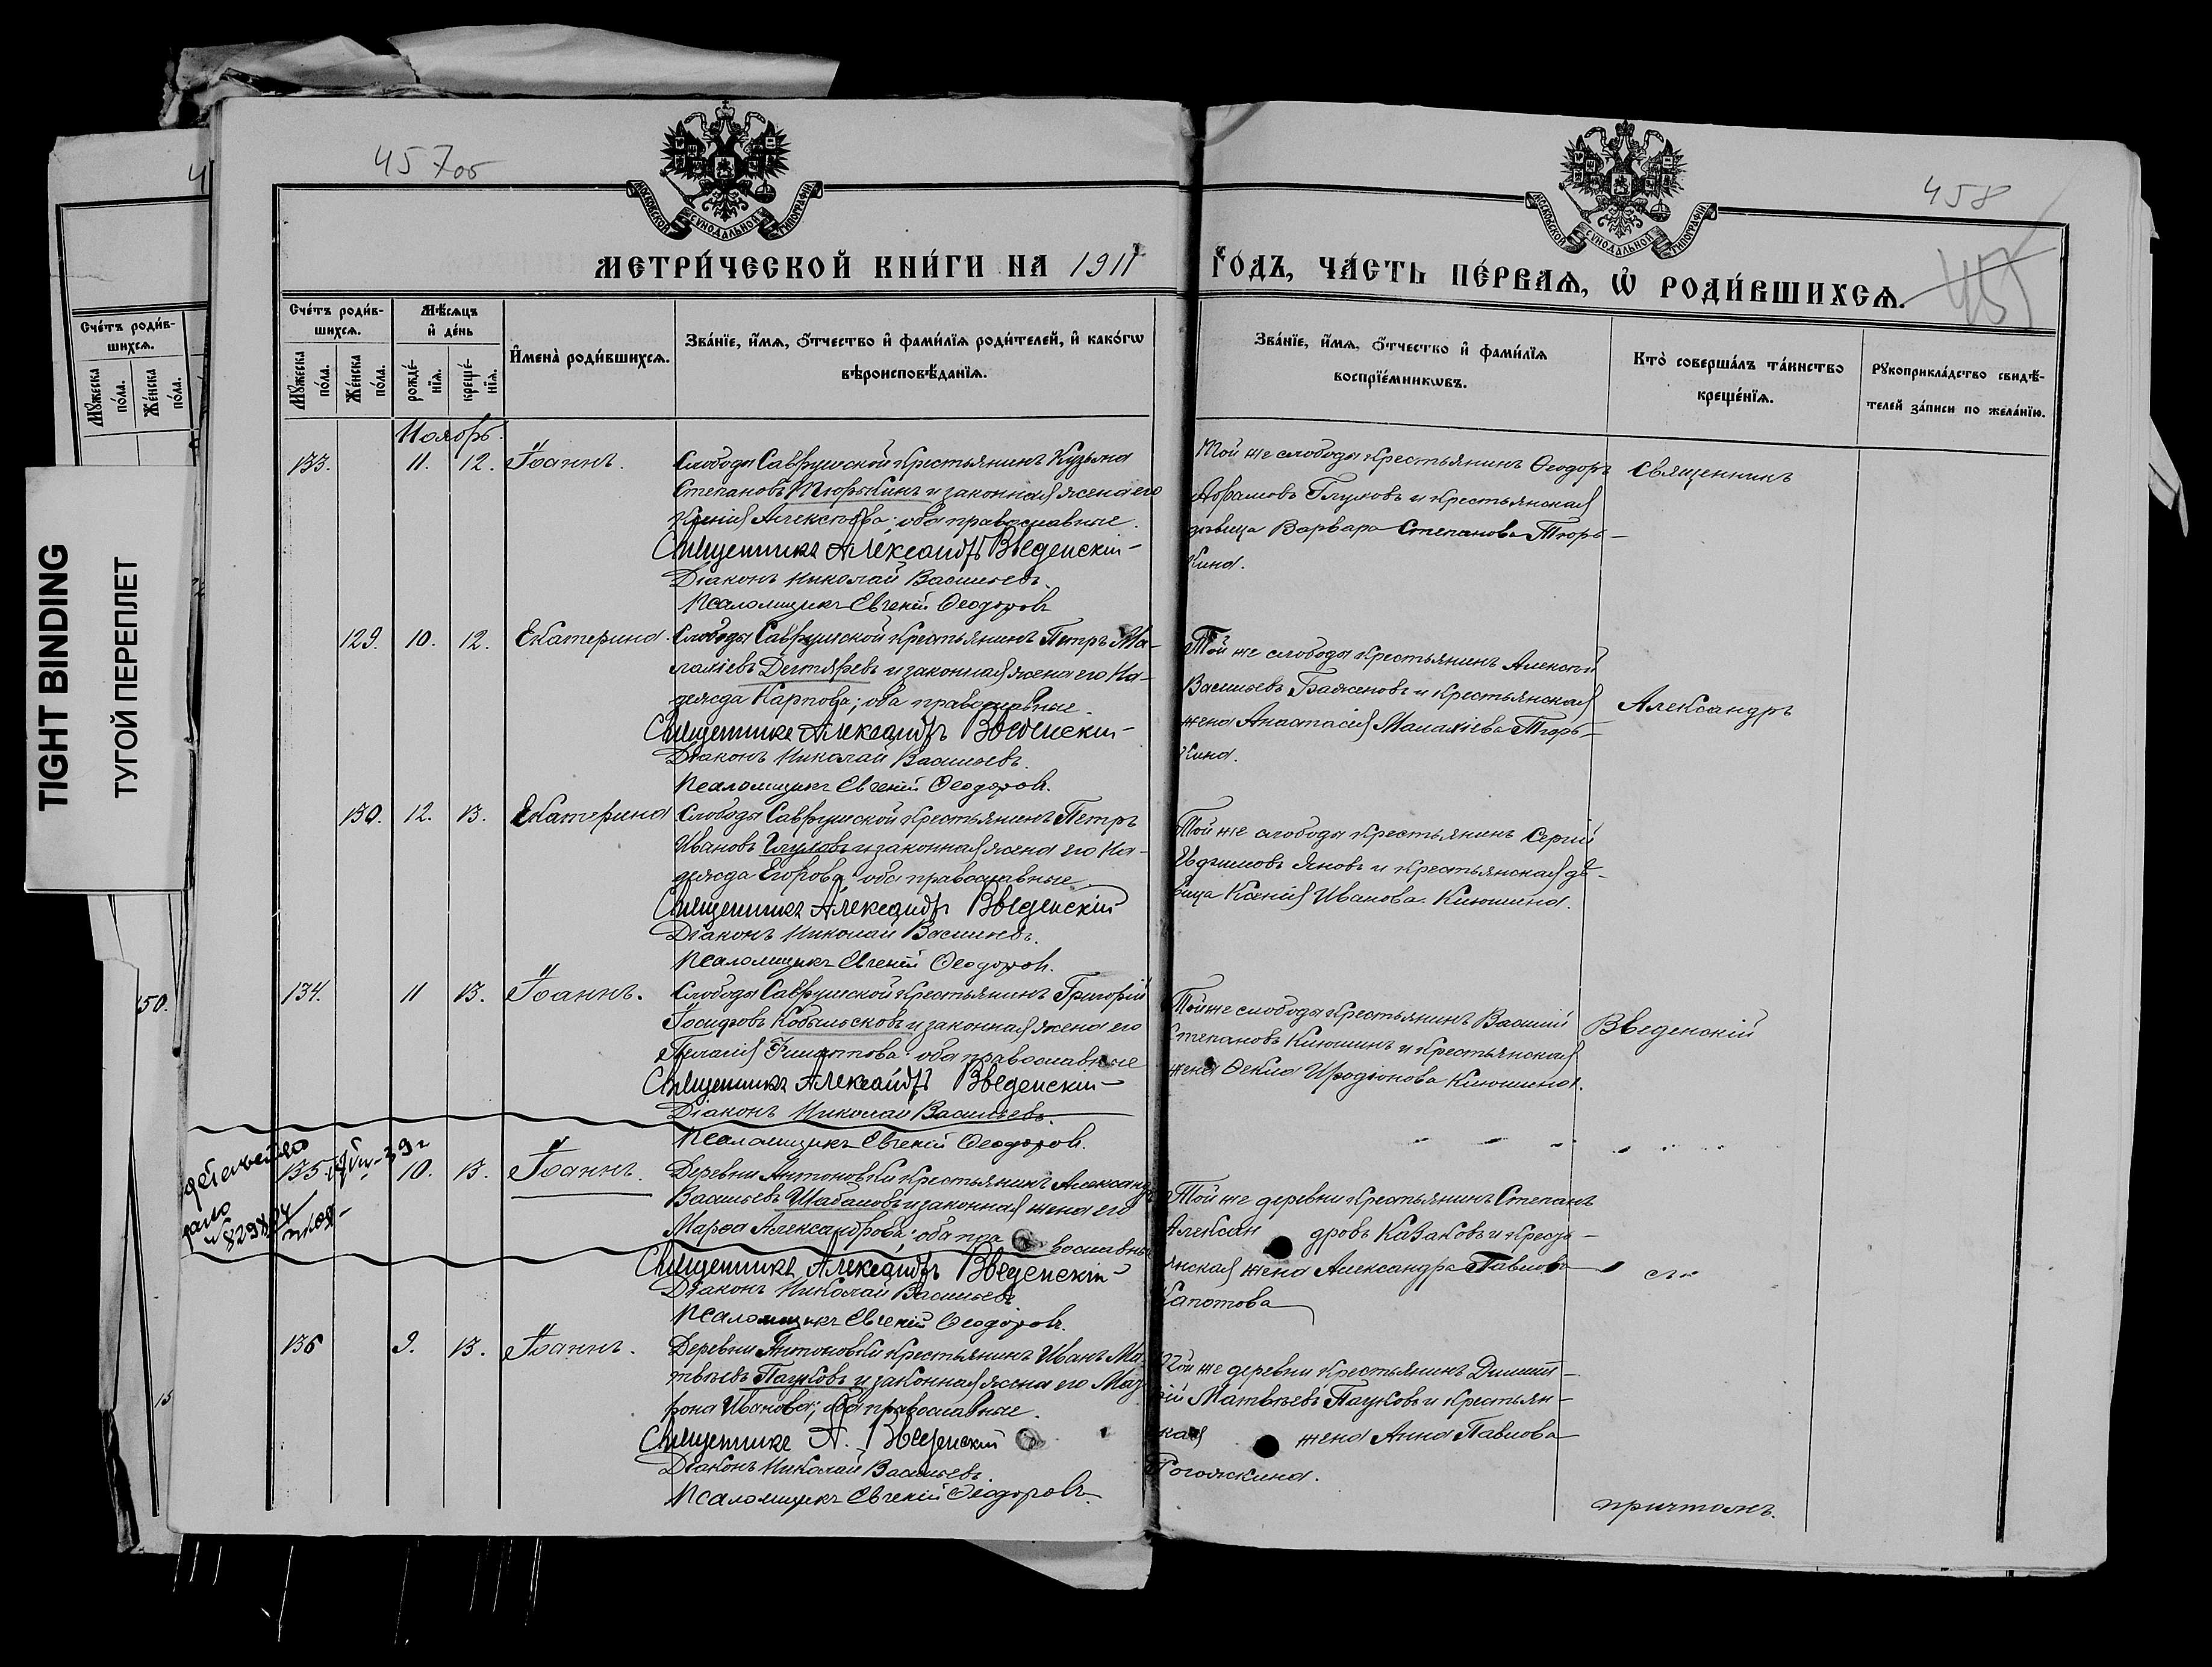 457об
458
МОСКОВСКОЙ СѴНОДАЛЬНОЙ ТИПОГРАФІИ
МОСКОВСКОЙ СѴНОДАЛЬНОЙ ТИПОГРАФІИ
МЕТРИ́ЧЕСКОЙ КНИ́ГИ НА 1911
ГО́ДЪ, ЧА́СТЬ ПЕ́РВАѦ, Ѡ҆ РОДИ́ВШИХСѦ.
Сче́тъ роди́в-
шихсѧ.
Мꙋжеска по́ла.
Же́нска по́ла.
Мѣ́сѧцъ
и҆ де́нь
рожде́-
нїѧ.
креще́-
нїѧ.
И҆мена̀ роди́вшихсѧ.
Зва́нїе, и҆́мѧ, ѻ҆́тчество и҆ фами́лїѧ роди́телей, и҆ како́гѡ
вѣроисповѣ́данїѧ.
Зва́нїе, и҆́мѧ, ѻ҆́тчество и҆ фами́лїѧ
воспрїе́мникѡвъ.
Кто̀ соверша́лъ та́инство
креще́нїѧ.
Рꙋкоприкла́дство свидѣ́-
телей за́писи по жела́нїю.
Сче́тъ роди́в-
шихсѧ.
Мꙋжеска по́ла.
Же́нска по́ла.
TIGHT BINDING
ТУГОЙ ПЕРЕПЛЕТ
Ноябрь.
133. 11. 12. Іоаннъ. Слободы Саврушской крестьянинъ Кузьма
Степановъ Тюрькинъ и законная жена его
Ксенія Алексѣева; оба православные.
Священникъ Александръ Введенскій
Діаконъ Николай Васильевъ.
Псаломщикъ Евгеній Ѳеодоровъ
Той же слободы крестьянинъ Ѳеодоръ
Абрамовъ Глуховъ и крестьянская
дѣвица Варвара Степанова Тюрь-
кина.
Священникъ
129. 10. 12. Екатерина. Слободы Саврушской крестьянинъ Петръ Ма-
лахіевъ Дегтяревъ и законная жена его На-
дежда Карпова; оба православные.
Священникъ Александръ Введенскій
Діаконъ Николай Васильевъ.
Псаломщикъ Евгеній Ѳеодоровъ.
Той же слободы крестьянинъ Алексѣй
Васильевъ Баженовъ и крестьянская
жена Анастасія Малахіева Тюрь-
кина.
Александръ
130. 12. 13. Екатерина Слободы Саврушской крестьянинъ Петръ
Ивановъ Глуховъ и законная жена его На-
дежда Егорова; оба православные
Священникъ Александръ Введенскій
Діаконъ Николай Васильевъ.
Псаломщикъ Евгеній Ѳеодоровъ.
Той же слободы крестьянинъ Сергій
Евѳимовъ Яновъ и крестьянская дѣ-
вица Ксенія Иванова Клюшина.
134. 11 13. Іоаннъ. Слободы Саврушской крестьянинъ Григорій
Іосифовъ Кобыльсковъ и законная жена его
Пелагія Филиппова; оба православные
Священникъ Александръ Введенскій
Діаконъ Николай Васильевъ.
Псаломщикъ Евгеній Ѳеодоровъ.
Той же слободы крестьянинъ Василій
Степановъ Клюшинъ и крестьянская
жена Ѳекла Иродіонова Клюшина.
Введенскій
135. 10. 13. Іоаннъ. Деревни Антоновки крестьянинъ Александръ
Васильевъ Шабаловъ и законная жена его
Марѳа Александрова; оба православные
Священникъ Александръ Введенскій
Діаконъ Николай Васильевъ
Псаломщикъ Евгеній Ѳеодоровъ.
Той же деревни крестьянинъ Степанъ
Александровъ Казаковъ и кресть-
янская жена Александра Павлова
Капотова
съ
136 9. 13. Іоаннъ. Деревни Антоновки крестьянинъ Иванъ Ма-
твѣевъ Пауковъ и законная жена его Мат-
рона Иванова; оба православные.
Священникъ А. Введенскій
Діаконъ Николай Васильевъ.
Псаломщикъ Евгеній Ѳеодоровъ.
Той же деревни крестьянинъ Димит-
рій Матвѣевъ Пауковъ и крестьян-
ская жена Анна Павлова
Рогожкина.
причтомъ.